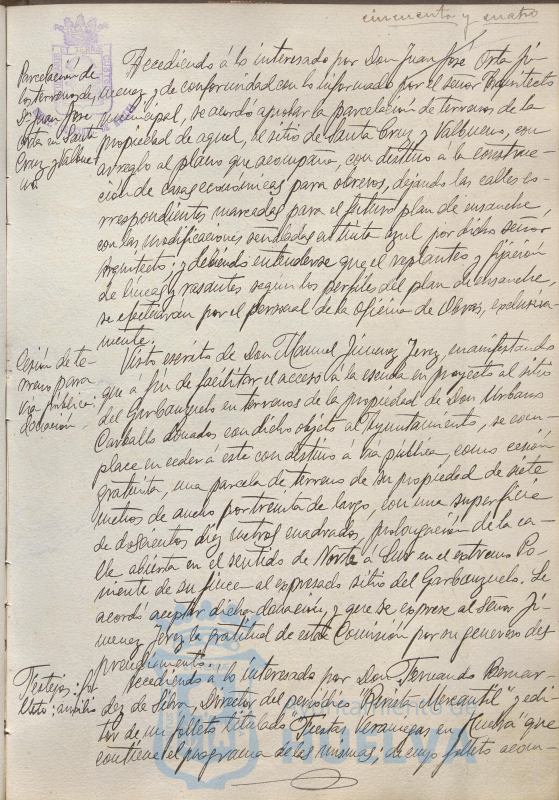 cincuenta y cuatro
Accediendo á lo interesado por Don Juan José Orta Ji-
Parcelación de
los terrenos de
D. Juan José
Orta en Santa
Cruz y Valbue-
no.
menez y de conformidad con lo informado por el señor Arquitecto
municipal, se acordó aprobar la parcelación de terrenos de la
propiedad de aquel, al sitio de Santa Cruz y Valbueno, con
arreglo al plano que acompaña, con destino á la construc-
ción de casas económicas para obreros, dejando las calles co-
rrespondientes marcadas para el futuro plan de ensanche
con las modificaciones señaladas en tinta azul por dicho señor
Arquitecto; y debiendo entenderse que el replanteo y fijación
de líneas y rasantes segun los perfiles del plan de ensanche,
se efectuaran por el personal de la Oficina de Obras, exclusiva-
mente.
Cesión de te-
rreno para
via pública:
donación
Visto escrito de Don Manuel Jimenez Jerez, manifestando
que a fin de facilitar el acceso á la escuela en proyecto al sitio
del Garbanzuelo en terrenos de la propiedad de Don Urbano
Carballo donados con dicho objeto al Ayuntamiento, se com-
place en ceder á este con destino á via pública, como cesión
gratuita, una parcela de terreno de su propiedad de siete
metros de ancho por treinta de largo, con una superficie
de doscientos diez metros cuadrados, prolongación de la ca-
lle abierta en el sentido de Norte á Sur en el extremo Po-
niente de su finca al expresado sitio del Garbanzuelo. Se
acordó aceptar dicha donación, y que se exprese al Señor Ji-
menez Jerez la gratitud de esta Comisión por su generoso des-
prendimiento.
Festejos: fo-
lleto: auxilio
Accediendo á lo interesado por Don Fernando Bernar-
dez de Silva, Director del periódico "Revista Mercantil" y edi-
tor de un folleto titulado "Fiestas Veraniegas en Huelva" que
contiene el programa de las mismas; de cuyo folleto acom-
Ayuntamiento de
HUELVA